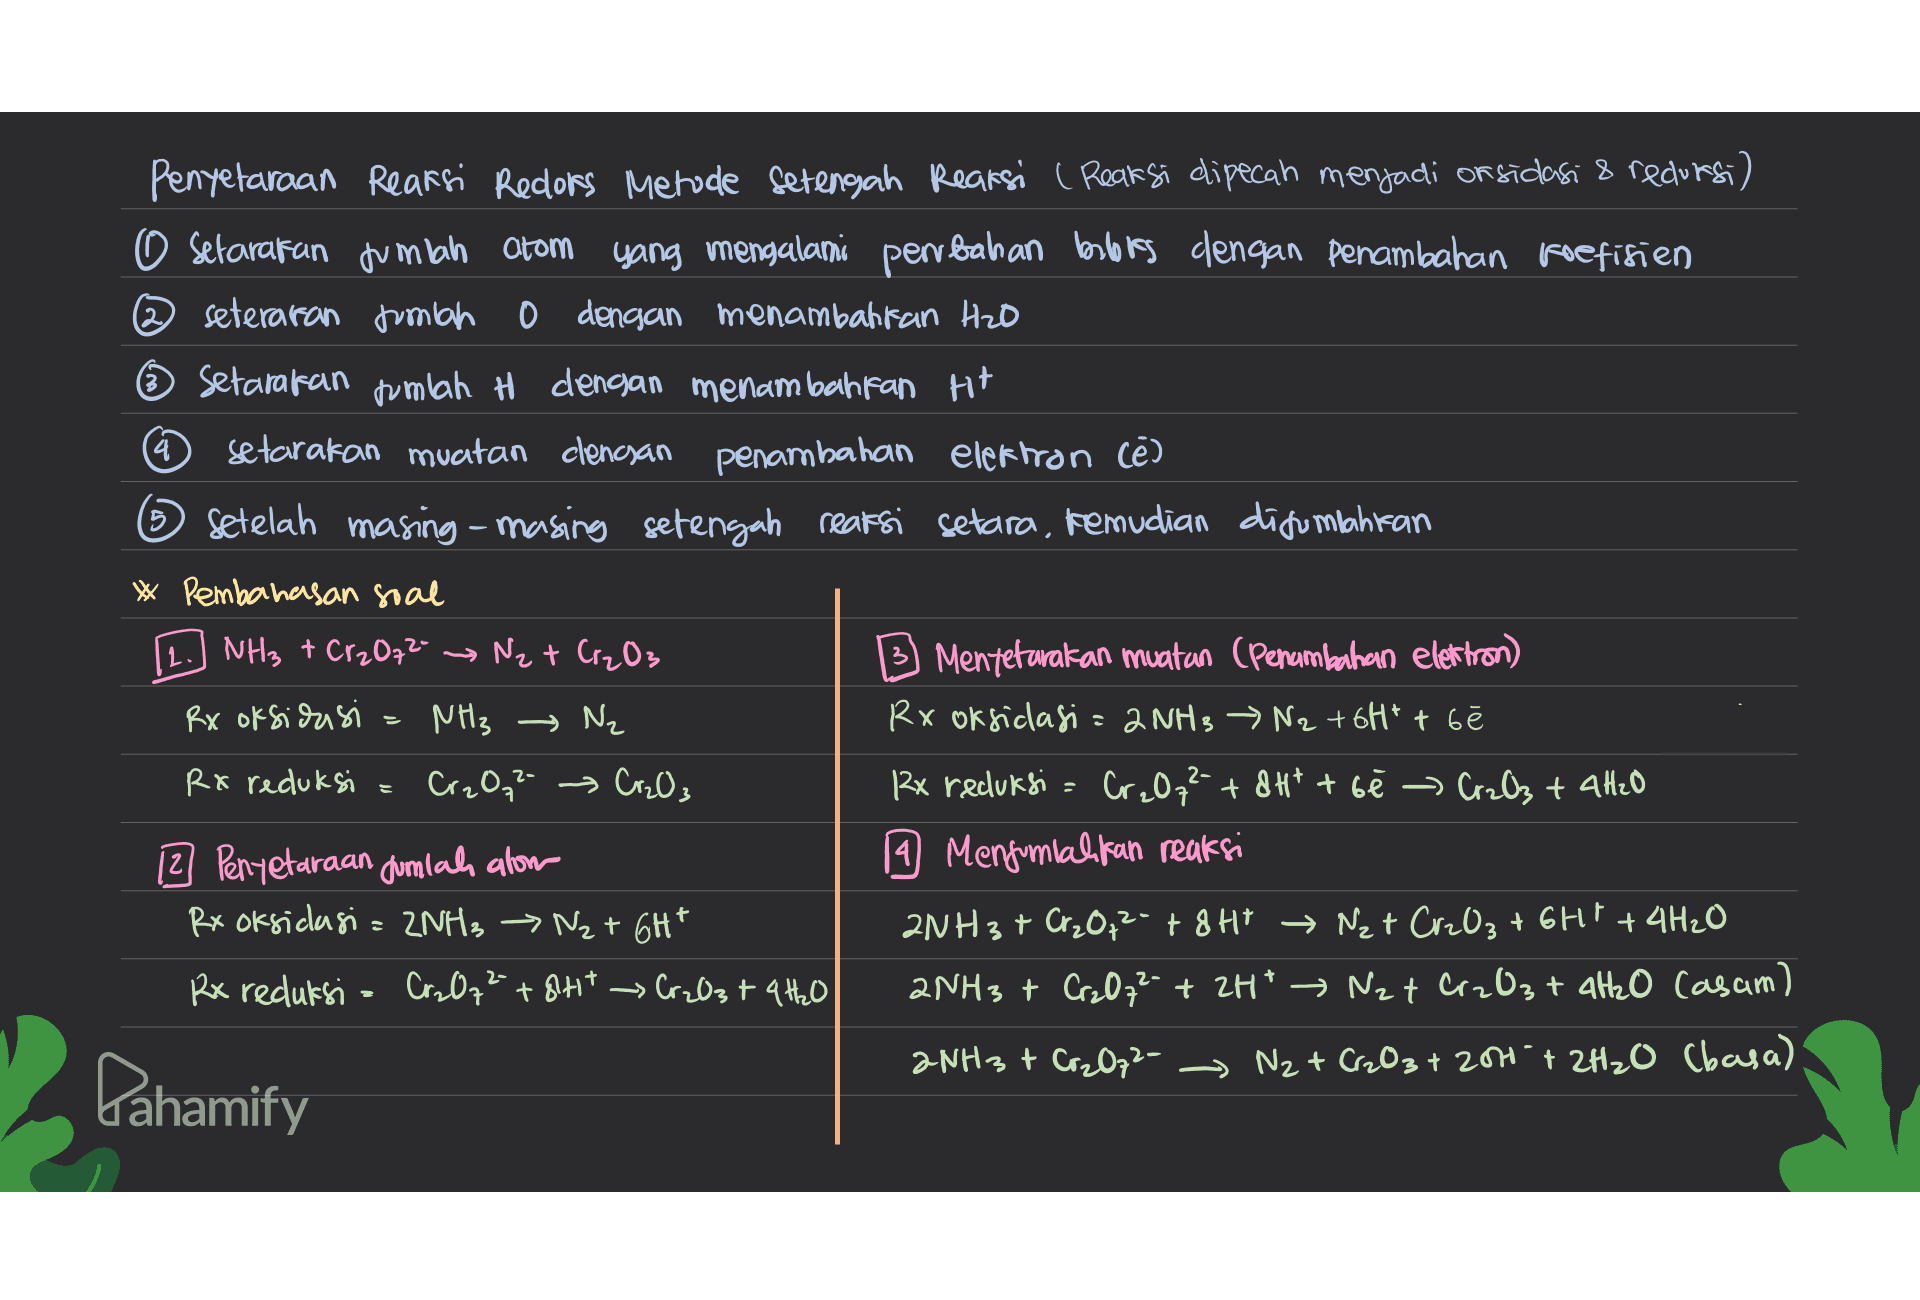 Penyetaraan Reaksi Redoks Metode Setengah Reaksi (Reaksi dipecah menjadi oksidasi & reduksi)
① Setarakan jumlah atom yang mengalami perubahan biloks dengan Penambahan koefisien
② seterakan jumlah O dengan menambahkan H₂O
③ Setarakan jumlah H dengan menambahkan H⁺
④ setarakan muatan dengan penambahan elektron (ē)
⑤ Setelah masing-masing setengah reaksi setara, kemudian dijumlahkan
※ Pembahasan soal
1. NH₃ + Cr₂O₇²⁻ → N₂ + Cr₂O₃
Rx oksidasi = NH₃ → N₂
Rx reduksi = Cr₂O₇²⁻ → Cr₂O₃
2 Penyetaraan jumlah atom
Rx oksidasi = 2NH₃ → N₂ + 6H⁺
Rx reduksi = Cr₂O₇²⁻ + 8H⁺ → Cr₂O₃ + 4H₂O
3 Menyetarakan muatan (Penambahan elektron)
Rx oksidasi = 2NH₃ → N₂ + 6H⁺ + 6ē
Rx reduksi = Cr₂O₇²⁻ + 8H⁺ + 6ē → Cr₂O₃ + 4H₂O
4 Menjumlahkan reaksi
2NH₃ + Cr₂O₇²⁻ + 8H⁺ → N₂ + Cr₂O₃ + 6H⁺ + 4H₂O
2NH₃ + Cr₂O₇²⁻ + 2H⁺ → N₂ + Cr₂O₃ + 4H₂O (asam)
2NH₃ + Cr₂O₇²⁻ → N₂ + Cr₂O₃ + 2OH⁻ + 2H₂O (basa)
Pahamify